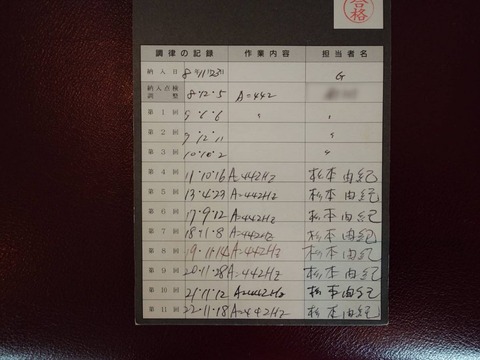 合格
調律の記録 作業内容 担当者名
納入日 8年11月23日 G
納入点検調整 8・12・5 A=442
第1回 9・6・6 〃 〃
第2回 9・12・11 〃
第3回 10・10・2 〃
第4回 11・10・16 A=442Hz 松本由紀
第5回 13・4・23 A=442Hz 松本由紀
第6回 17・9・12 A=442Hz 松本由紀
第7回 18・11・8 A=442Hz 松本由紀
第8回 19・11・14 A=442Hz 松本由紀
第9回 20・11・28 A=442Hz 松本由紀
第10回 21・11・12 A=442Hz 松本由紀
第11回 22・11・18 A=442Hz 松本由紀